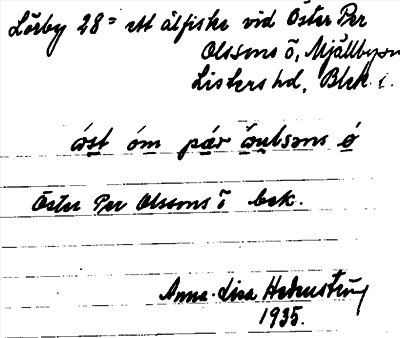 Lörby 28 = ett ålfiske vid Öster Per
Olssons ö, Mjällbysn
Listers hd, Blek. l.
öst óm pär
Öster Per Olssons ö bek.
Anna-Lisa
1935.